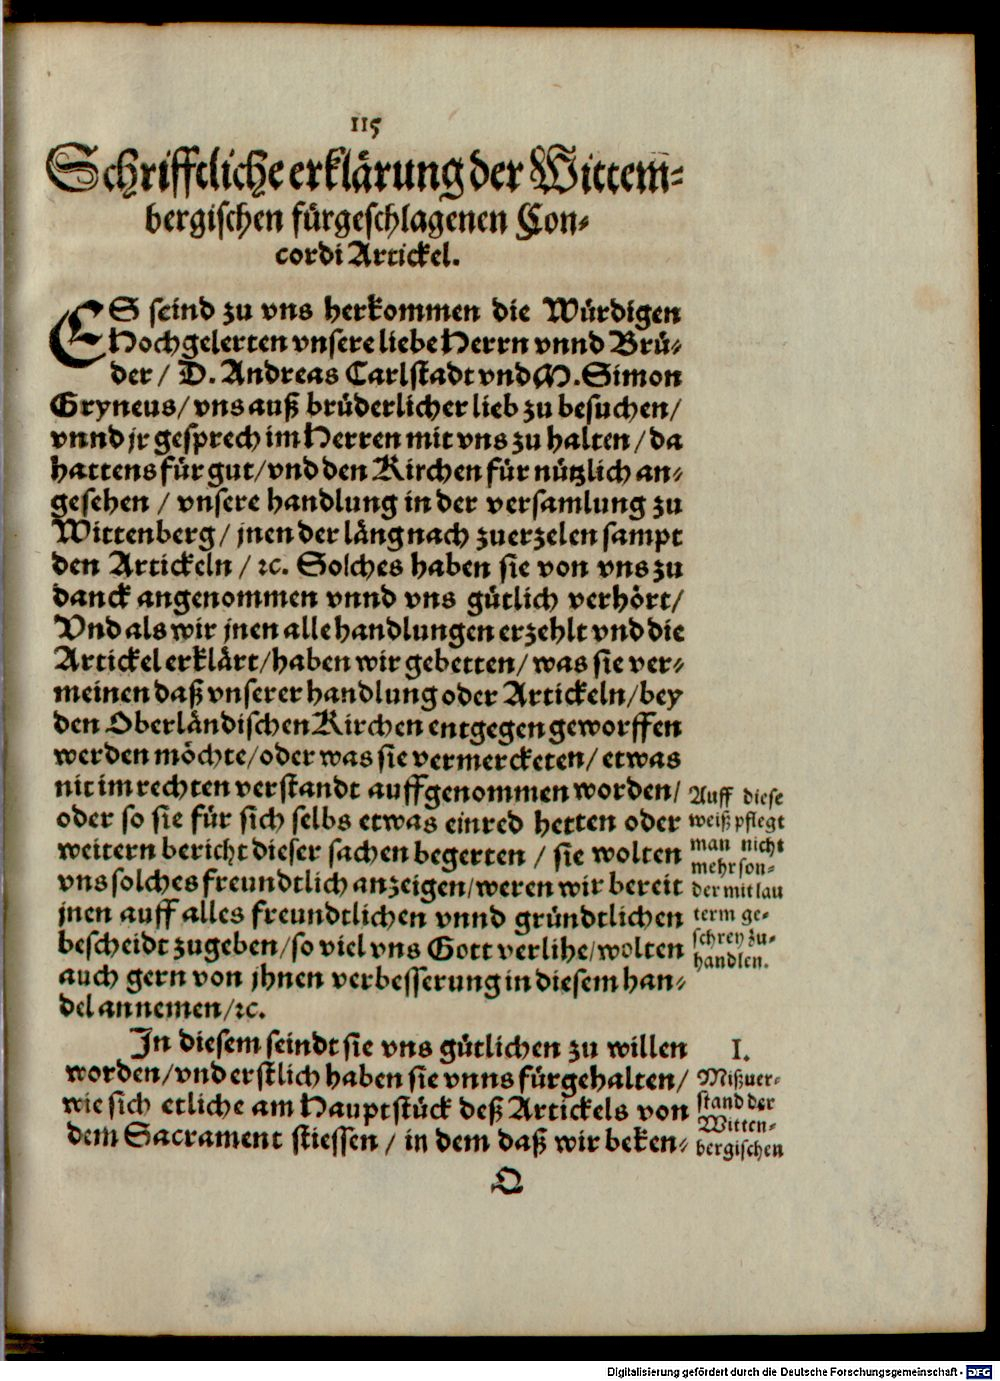 115
Schrifftliche erklärung der Wittem-
bergischen fürgeschlagenen Con-
cordi Artickel.
ES seind zu vns herkommen die Würdigen
Hochgelerten vnsere liebe Herrn vnnd Brü-
der / D. Andreas Carlstadt vnd M. Simon
Gryneus / vns auß brüderlicher lieb zu besuchen /
vnnd jr gesprech im Herren mit vns zu halten / da
hattens für gut / vnd den Kirchen für nützlich an-
gesehen / vnsere handlung in der versamlung zu
Wittenberg / jnen der läng nach zuerzelen sampt
den Artickeln / ꝛc. Solches haben sie von vns zu
danck angenommen vnnd vns gütlich verhört /
Vnd als wir jnen alle handlungen erzehlt vnd die
Artickel erklärt / haben wir gebetten / was sie ver-
meinen daß vnserer handlung oder Artickeln / bey
den Oberländischen Kirchen entgegen geworffen
werden möchte / oder was sie vermercketen / etwas
nit im rechten verstandt auffgenommen worden /
oder so sie für sich selbs etwas einred hetten oder
weitern bericht dieser sachen begerten / sie wolten
vns solches freundtlich anzeigen / weren wir bereit
jnen auff alles freundtlichen vnnd gründtlichen
bescheidt zugeben / so viel vns Gott verlihe / wolten
auch gern von jhnen verbesserung in diesem han-
del annemen / ꝛc.
Auff diese
weiß pflegt
man nicht
mehr son-
der mit lau
term ge-
schrey zu-
handlen.
In diesem seindt sie vns gütlichen zu willen
worden / vnd erstlich haben sie vnns fürgehalten /
wie sich etliche am Hauptstück deß Artickels von
dem Sacrament stiessen / in dem daß wir beken-
I.
Mißuer-
stand der
Witten-
bergischen
Q
Digitalisierung gefördert durch die Deutsche Forschungsgemeinschaft - DFG